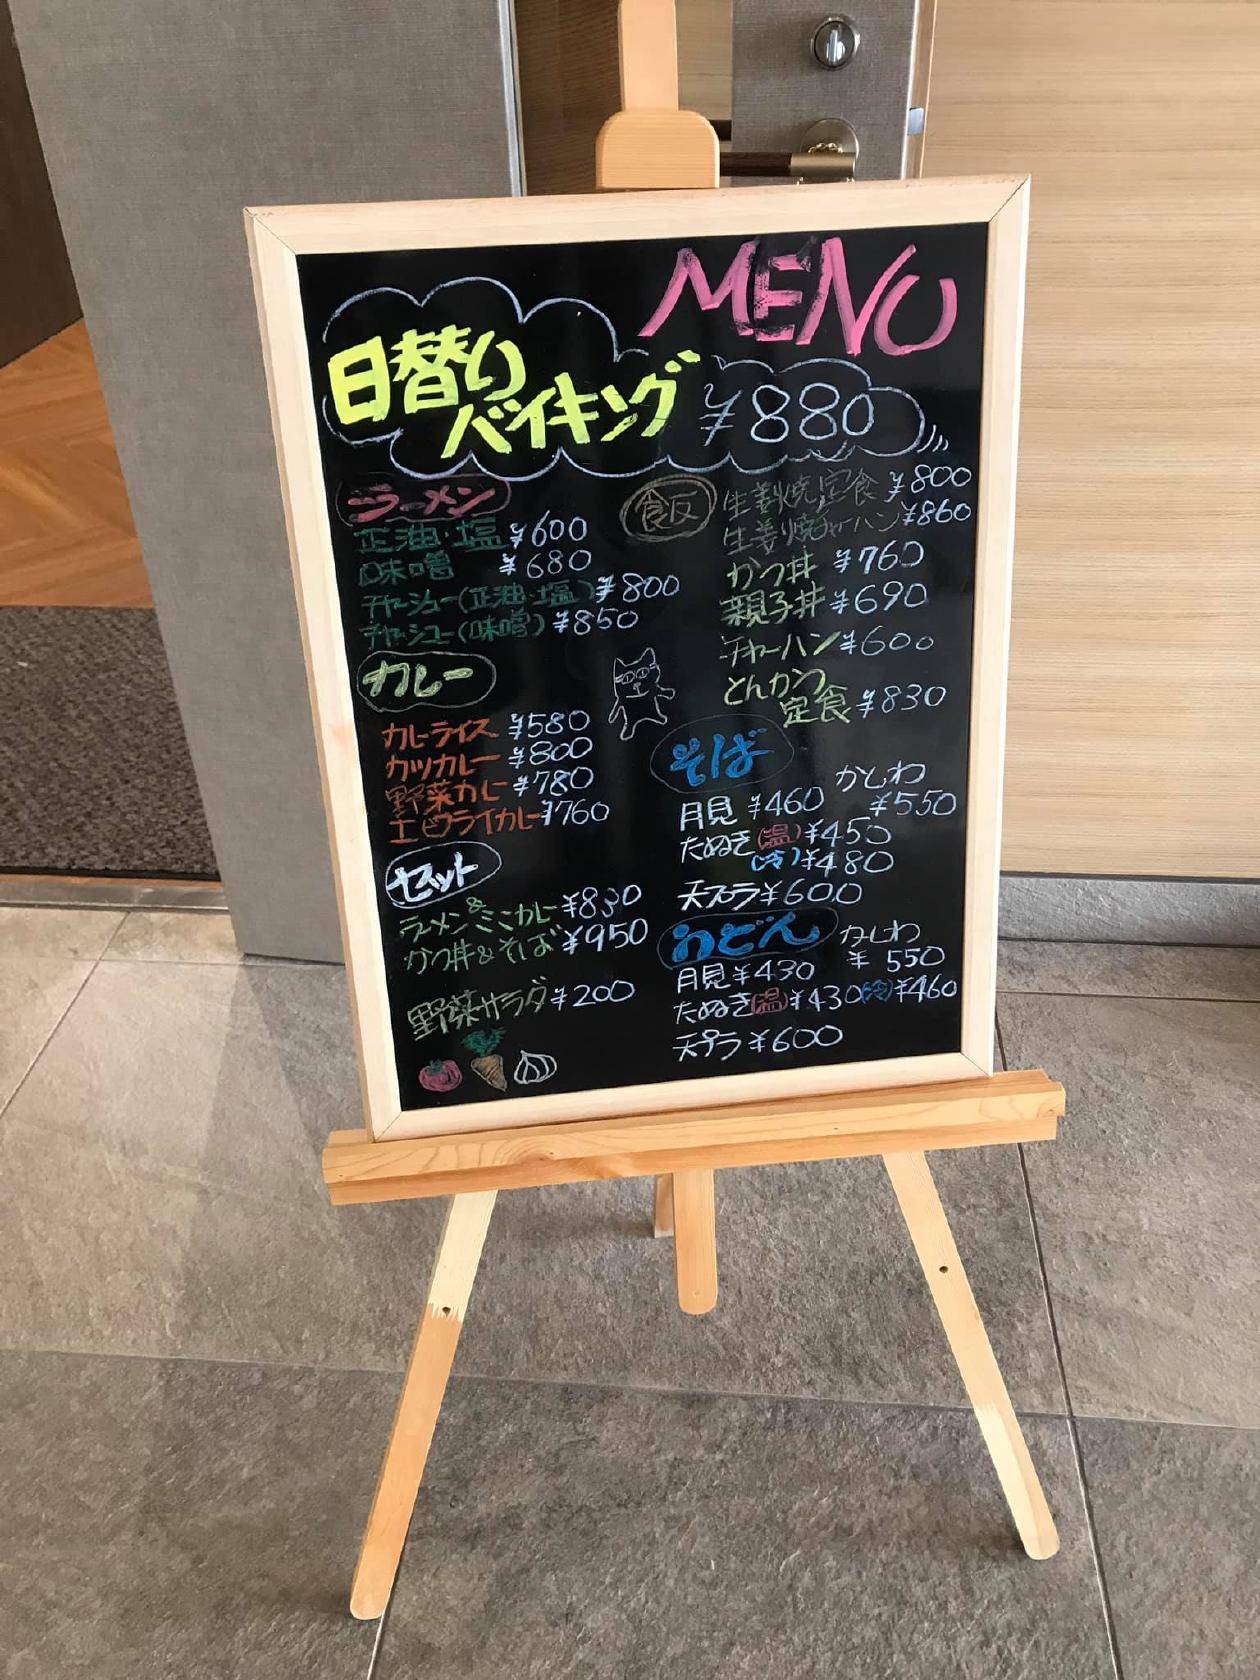 MENU
日替り
バイキング ¥880
ラーメン
正油・塩 ¥600
味噌 ¥680
チャーシュー(正油・塩) ¥800
チャーシュー(味噌) ¥850
カレー
カレーライス ¥580
カツカレー ¥800
野菜カレー ¥780
エビフライカレー ¥760
セット
ラーメン&ミニカレー ¥830
かつ丼&そば ¥950
野菜サラダ ¥200
飯
生姜焼定食 ¥800
生姜焼チャーハン ¥860
かつ丼 ¥760
親子丼 ¥690
チャーハン ¥600
とんかつ
定食 ¥830
そば
かしわ
月見 ¥460 ¥550
たぬき(温) ¥450
(冷) ¥480
天プラ ¥600
うどん かしわ
月見 ¥430 ¥550
たぬき(温) ¥430 (冷) ¥460
天プラ ¥600